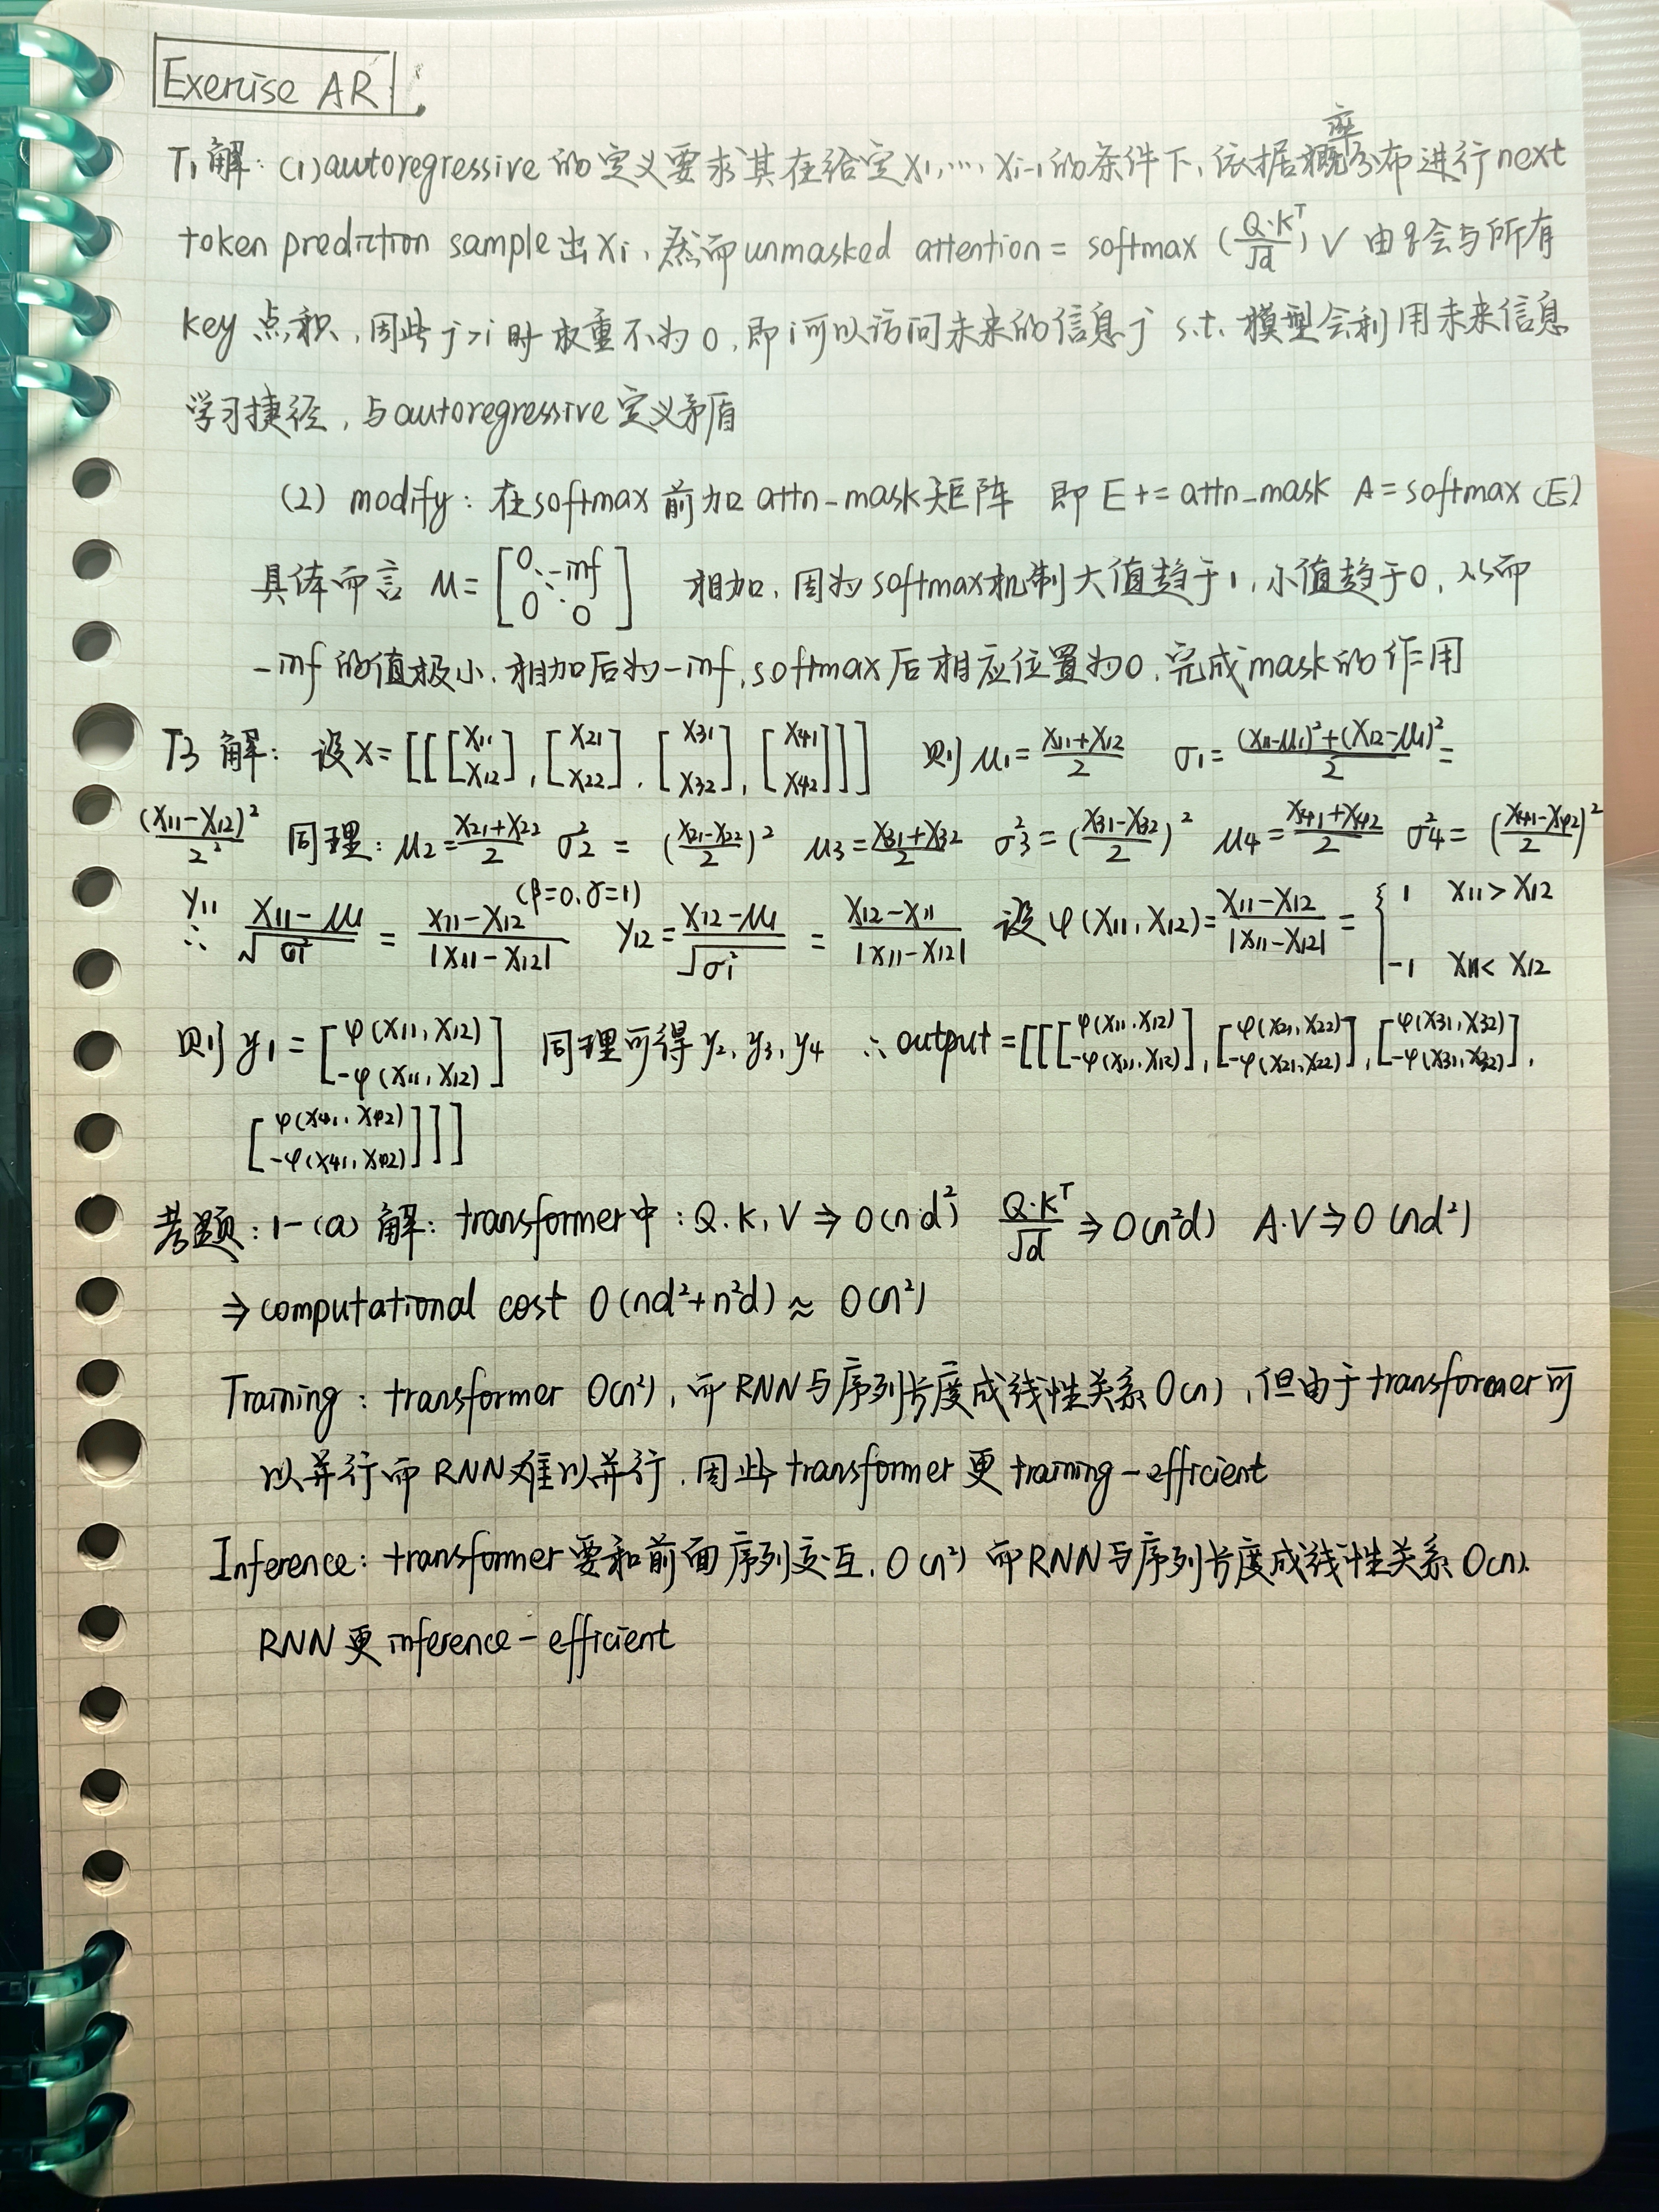 Exercise AR
T1 解: (1) autoregressive 的定义要求其在给定 x1, ..., xi-1 的条件下, 依据概率分布进行 next
token prediction sample 出 xi, 然而 unmasked attention = softmax (Q·K^T/√d) V 由 q 会与所有
key 点积, 因此 j>i 时权重不为 0, 即 i 可以访问未来的信息 j s.t. 模型会利用未来信息
学习捷径, 与 autoregressive 定义矛盾
(2) modify: 在 softmax 前加 attn-mask 矩阵 即 E += attn_mask A = softmax (E)
具体而言 M = [0 ⋱ -inf 0 ⋱ 0] 相加, 因为 softmax 机制大值趋于 1, 小值趋于 0, 从而
-inf 的值极小, 相加后为 -inf, softmax 后相应位置为 0, 完成 mask 的作用
T3 解: 设 X = [[[x11 x12], [x21 x22], [x31 x32], [x41 x42]]] 则 μ1 = (x11+x12)/2 σ1 = ((x11-μ1)²+(x12-μ1)²)/2 =
(x11-x12)²/2² 同理: μ2 = (x21+x22)/2 σ2² = ((x21-x22)/2)² μ3 = (x31+x32)/2 σ3² = ((x31-x32)/2)² μ4 = (x41+x42)/2 σ4² = ((x41-x42)/2)²
(β=0, γ=1)
∴ y11 (x11-μ1)/√σ1² = (x11-x12)/|x11-x12| y12 = (x12-μ1)/√σ1² = (x12-x11)/|x11-x12| 设 φ(x11, x12) = (x11-x12)/|x11-x12| = { 1 x11 > x12 -1 x11 < x12
则 y1 = [φ(x11, x12) -φ(x11, x12)] 同理可得 y2, y3, y4 ∴ output = [[[φ(x11, x12) -φ(x11, x12)], [φ(x21, x22) -φ(x21, x22)], [φ(x31, x32) -φ(x31, x32)],
[φ(x41, x42) -φ(x41, x42)]]]
考题: 1-(a) 解: transformer 中: Q, K, V ⇒ O(n·d²) Q·K^T/√d ⇒ O(n²d) A·V ⇒ O(nd²)
⇒ computational cost O(nd²+n²d) ≈ O(n²)
Training: transformer O(n²), 而 RNN 与序列长度成线性关系 O(n), 但由于 transformer 可
以并行而 RNN 难以并行, 因此 transformer 更 training-efficient
Inference: transformer 要和前面序列交互, O(n²) 而 RNN 与序列长度成线性关系 O(n).
RNN 更 inference-efficient